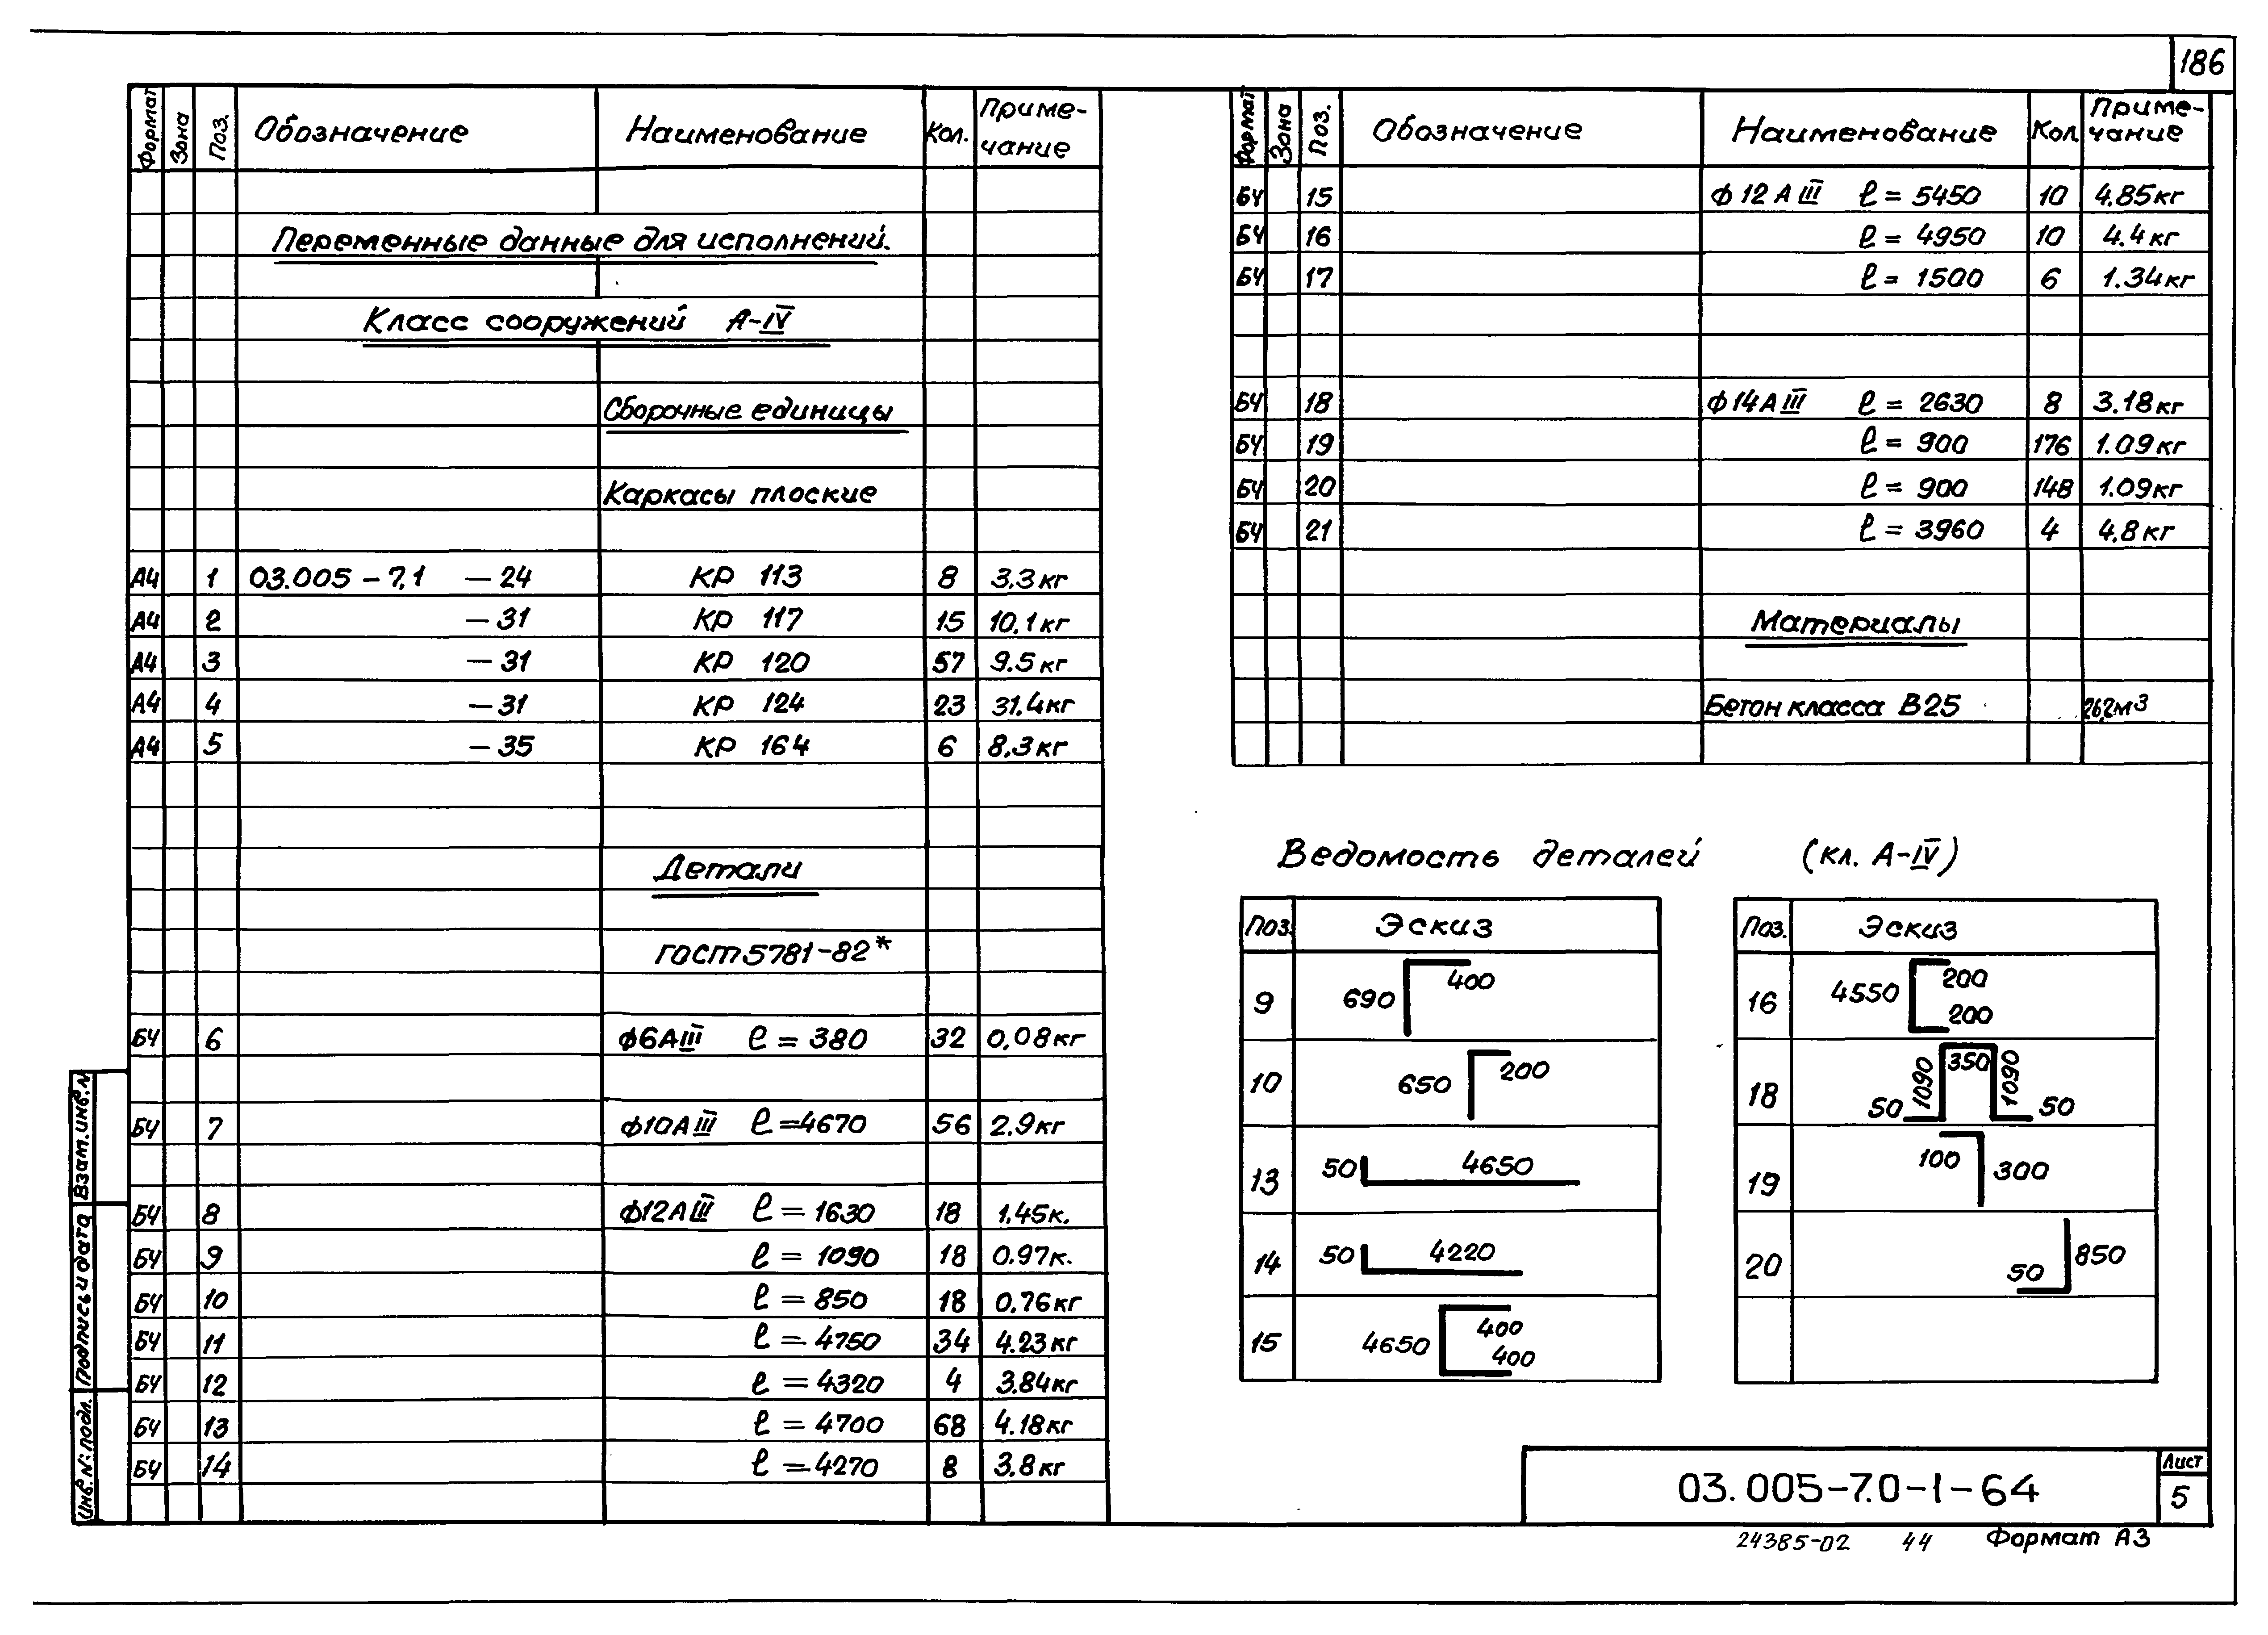 186
Формат Зона Поз. Обозначение Наименование Кол. Приме-
чание
Переменные данные для исполнений.
Класс сооружений А-IV
Сборочные единицы
Каркасы плоские
А4 1 03.005-7.1 -24 КР 113 8 3.3кг
А4 2 -31 КР 117 15 10.1кг
А4 3 -31 КР 120 57 9.5кг
А4 4 -31 КР 124 23 31.4кг
А4 5 -35 КР 164 6 8.3кг
Детали
ГОСТ 5781-82*
БЧ 6 ф6АIII ℓ = 380 32 0,08кг
БЧ 7 ф10АIII ℓ = 4670 56 2.9кг
БЧ 8 ф12АIII ℓ = 1630 18 1.45к.
БЧ 9 ℓ = 1090 18 0.97к.
БЧ 10 ℓ = 850 18 0.76кг
БЧ 11 ℓ = 4750 34 4.23кг
БЧ 12 ℓ = 4320 4 3.84кг
БЧ 13 ℓ = 4700 68 4.18кг
БЧ 14 ℓ = 4270 8 3.8кг
Формат Зона Поз. Обозначение Наименование Кол. Приме-
чание
БЧ 15 ф12АIII ℓ = 5450 10 4.85кг
БЧ 16 ℓ = 4950 10 4.4кг
БЧ 17 ℓ = 1500 6 1.34кг
БЧ 18 ф14АIII ℓ = 2630 8 3.18кг
БЧ 19 ℓ = 900 176 1.09кг
БЧ 20 ℓ = 900 148 1.09кг
БЧ 21 ℓ = 3960 4 4.8кг
Материалы
Бетон класса В25 26,2м3
Ведомость деталей (кл. А-IV)
Поз. Эскиз
9 690 400
10 650 200
13 50 4650
14 50 4220
15 4650 400
400
Поз. Эскиз
16 4550 200
200
18 50 1090 350 1090 50
19 100 300
20 50 850
Взам.инв.N
Подпись и дата
Инв.N: подл.
03.005-7.0-1-64
Лист
5
24385-02 44 Формат А3